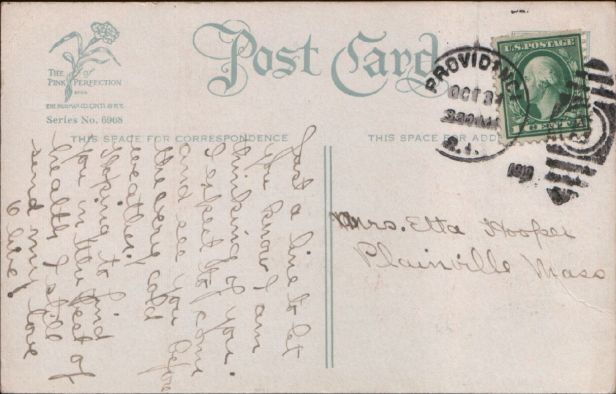 THE PINK OF PERFECTION
Series No. 6968
Post Card
THIS SPACE FOR CORRESPONDENCE
THIS SPACE FOR ADD
U.S. POSTAGE
CENT
PROVIDENC
OCT 3
R.I.
Just a line to let
you know I am
thinking of you.
I expect to come
and see you before
the very cold
weather.
Hoping to find
you in the best of
health I still
send my love
Mrs. Etta Hooper
Plainville Mass